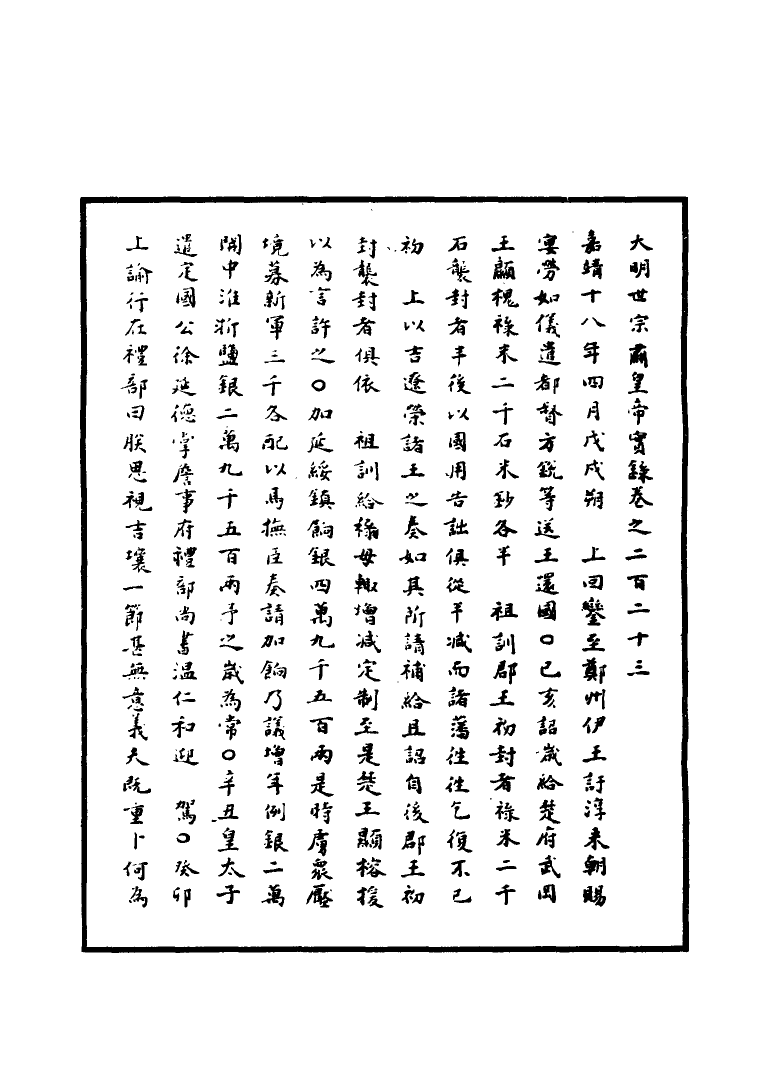 大明世宗肅皇帝實錄卷之二百二十三
嘉靖十八年四月戊戌朔　上回鑾至鄭州伊王訏淳來朝賜
宴勞如儀遣都督方銳等送王還國○己亥詔歲給楚府武岡
王顯槐祿米二千石米鈔各半　祖訓郡王初封者祿米二千
石襲封者半後以國用告詘俱從半減而諸藩往往乞復不已
初　上以吉遼榮諸王之奏如其所請補給且詔自後郡王初
封襲封者俱依　祖訓給祿毋輒增減定制至是楚王顯榕援
以為言許之○加延綏鎮餉銀四萬九千五百兩是時虜眾壓
境募新軍三千各配以馬撫臣奏請加餉乃議增年例銀二萬
開中淮浙鹽銀二萬九千五百兩予之歲為常○辛丑皇太子
遣定國公徐延德掌詹事府禮部尚書溫仁和迎　駕○癸卯
上諭行在禮部曰朕思視吉壤一節甚無意義夫既重卜何為